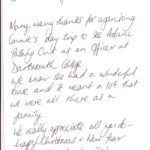 Many many thanks for organising
Connie's day trip to see Adam
Passing Out as an Officer at
Dartmouth College.
We know she had a wonderful
time and it meant a lot that
we were all there as a
family.
We really appreciate all you do -
happy Christmas + New Year